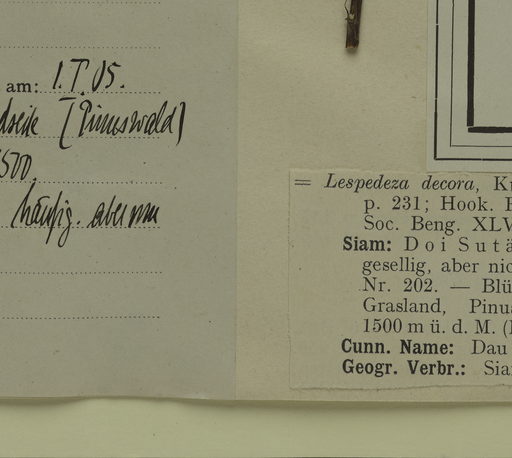 am: 1. I. 05.
[Pinuswald]
1500.
häufig. aber nur
= Lespedeza decora,
p. 231; Hook.
Soc. Beng. XLV
Siam: Doi Sutä
gesellig, aber nic
Nr. 202. — Blü
Grasland, Pinu
1500 m ü. d. M. (
Cunn. Name: Dau
Geogr. Verbr.: Sia